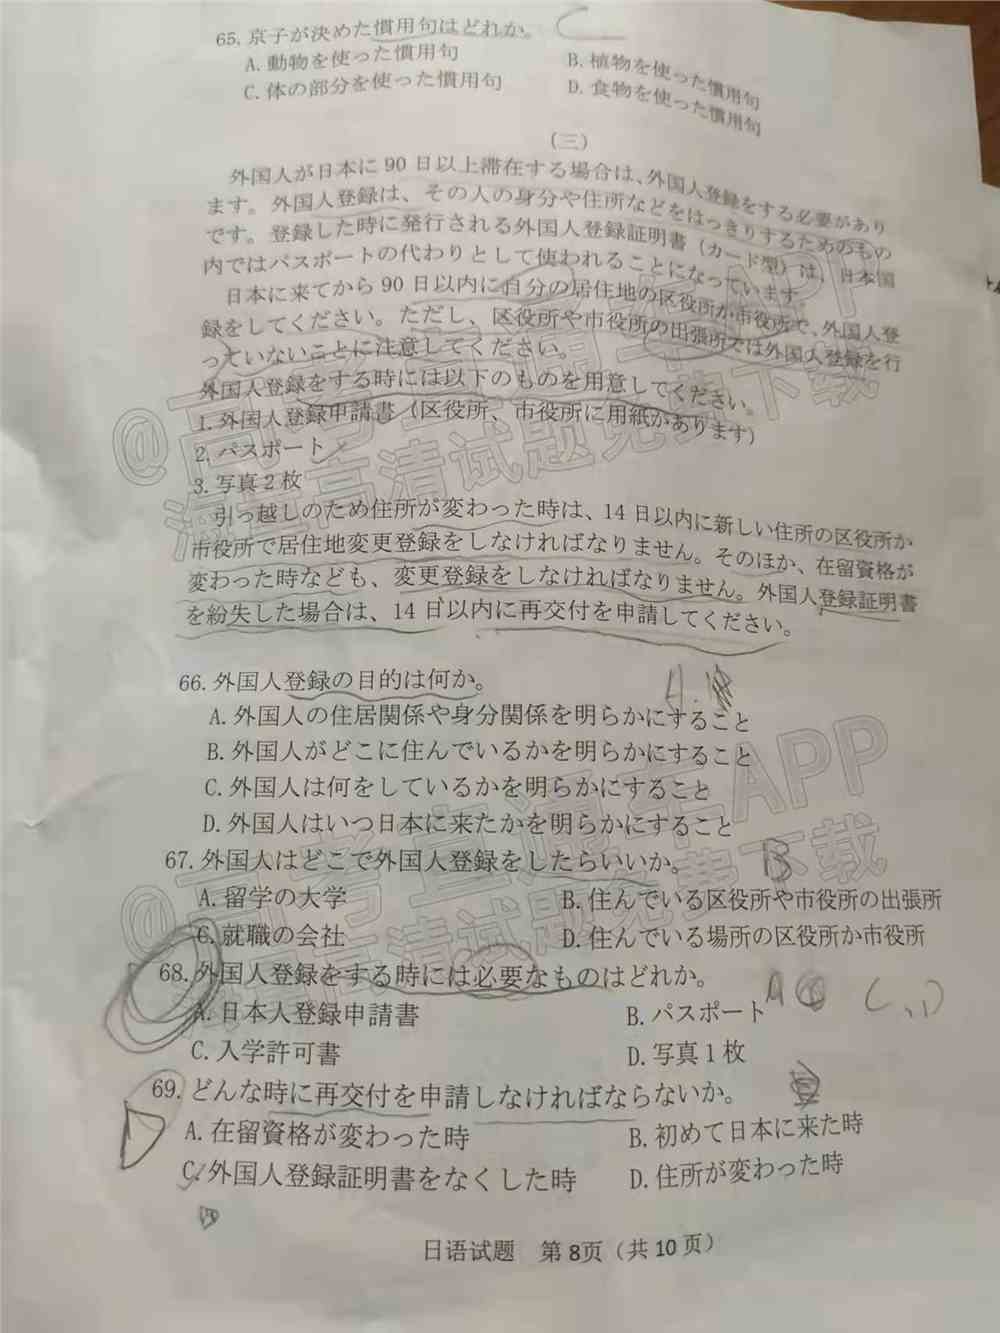 65. 京子が決めた慣用句はどれか。 C
A. 動物を使った慣用句
B. 植物を使った慣用句
C. 体の部分を使った慣用句
D. 食物を使った慣用句
(三)
外国人が日本に 90 日以上滞在する場合は、外国人登録をする必要があり
ます。外国人登録は、その人の身分や住所などをはっきりするためのもの
です。登録した時に発行される外国人登録証明書（カード型）は、日本国
内ではパスポートの代わりとして使われることになっています。
日本に来てから 90 日以内に自分の居住地の区役所か市役所で、外国人登
録をしてください。ただし、区役所や市役所の出張所では外国人登録を行
っていないことに注意してください。
外国人登録をする時には以下のものを用意してください。
1. 外国人登録申請書（区役所、市役所に用紙があります）
2. パスポート
3. 写真 2 枚
引っ越しのため住所が変わった時は、14 日以内に新しい住所の区役所か
市役所で居住地変更登録をしなければなりません。そのほか、在留資格が
変わった時なども、変更登録をしなければなりません。外国人登録証明書
を紛失した場合は、14 日以内に再交付を申請してください。
66. 外国人登録の目的は何か。
A. 外国人の住居関係や身分関係を明らかにすること
B. 外国人がどこに住んでいるかを明らかにすること
C. 外国人は何をしているかを明らかにすること
D. 外国人はいつ日本に来たかを明らかにすること
67. 外国人はどこで外国人登録をしたらいいか。 B
A. 留学の大学
B. 住んでいる区役所や市役所の出張所
C. 就職の会社
D. 住んでいる場所の区役所か市役所
68. 外国人登録をする時には必要なものはどれか。
A. 日本人登録申請書
B. パスポート
C. 入学許可書
D. 写真 1 枚
69. どんな時に再交付を申請しなければならないか。
A. 在留資格が変わった時
B. 初めて日本に来た時
C. 外国人登録証明書をなくした時
D. 住所が変わった時
日语试题 第 8页（共 10 页）